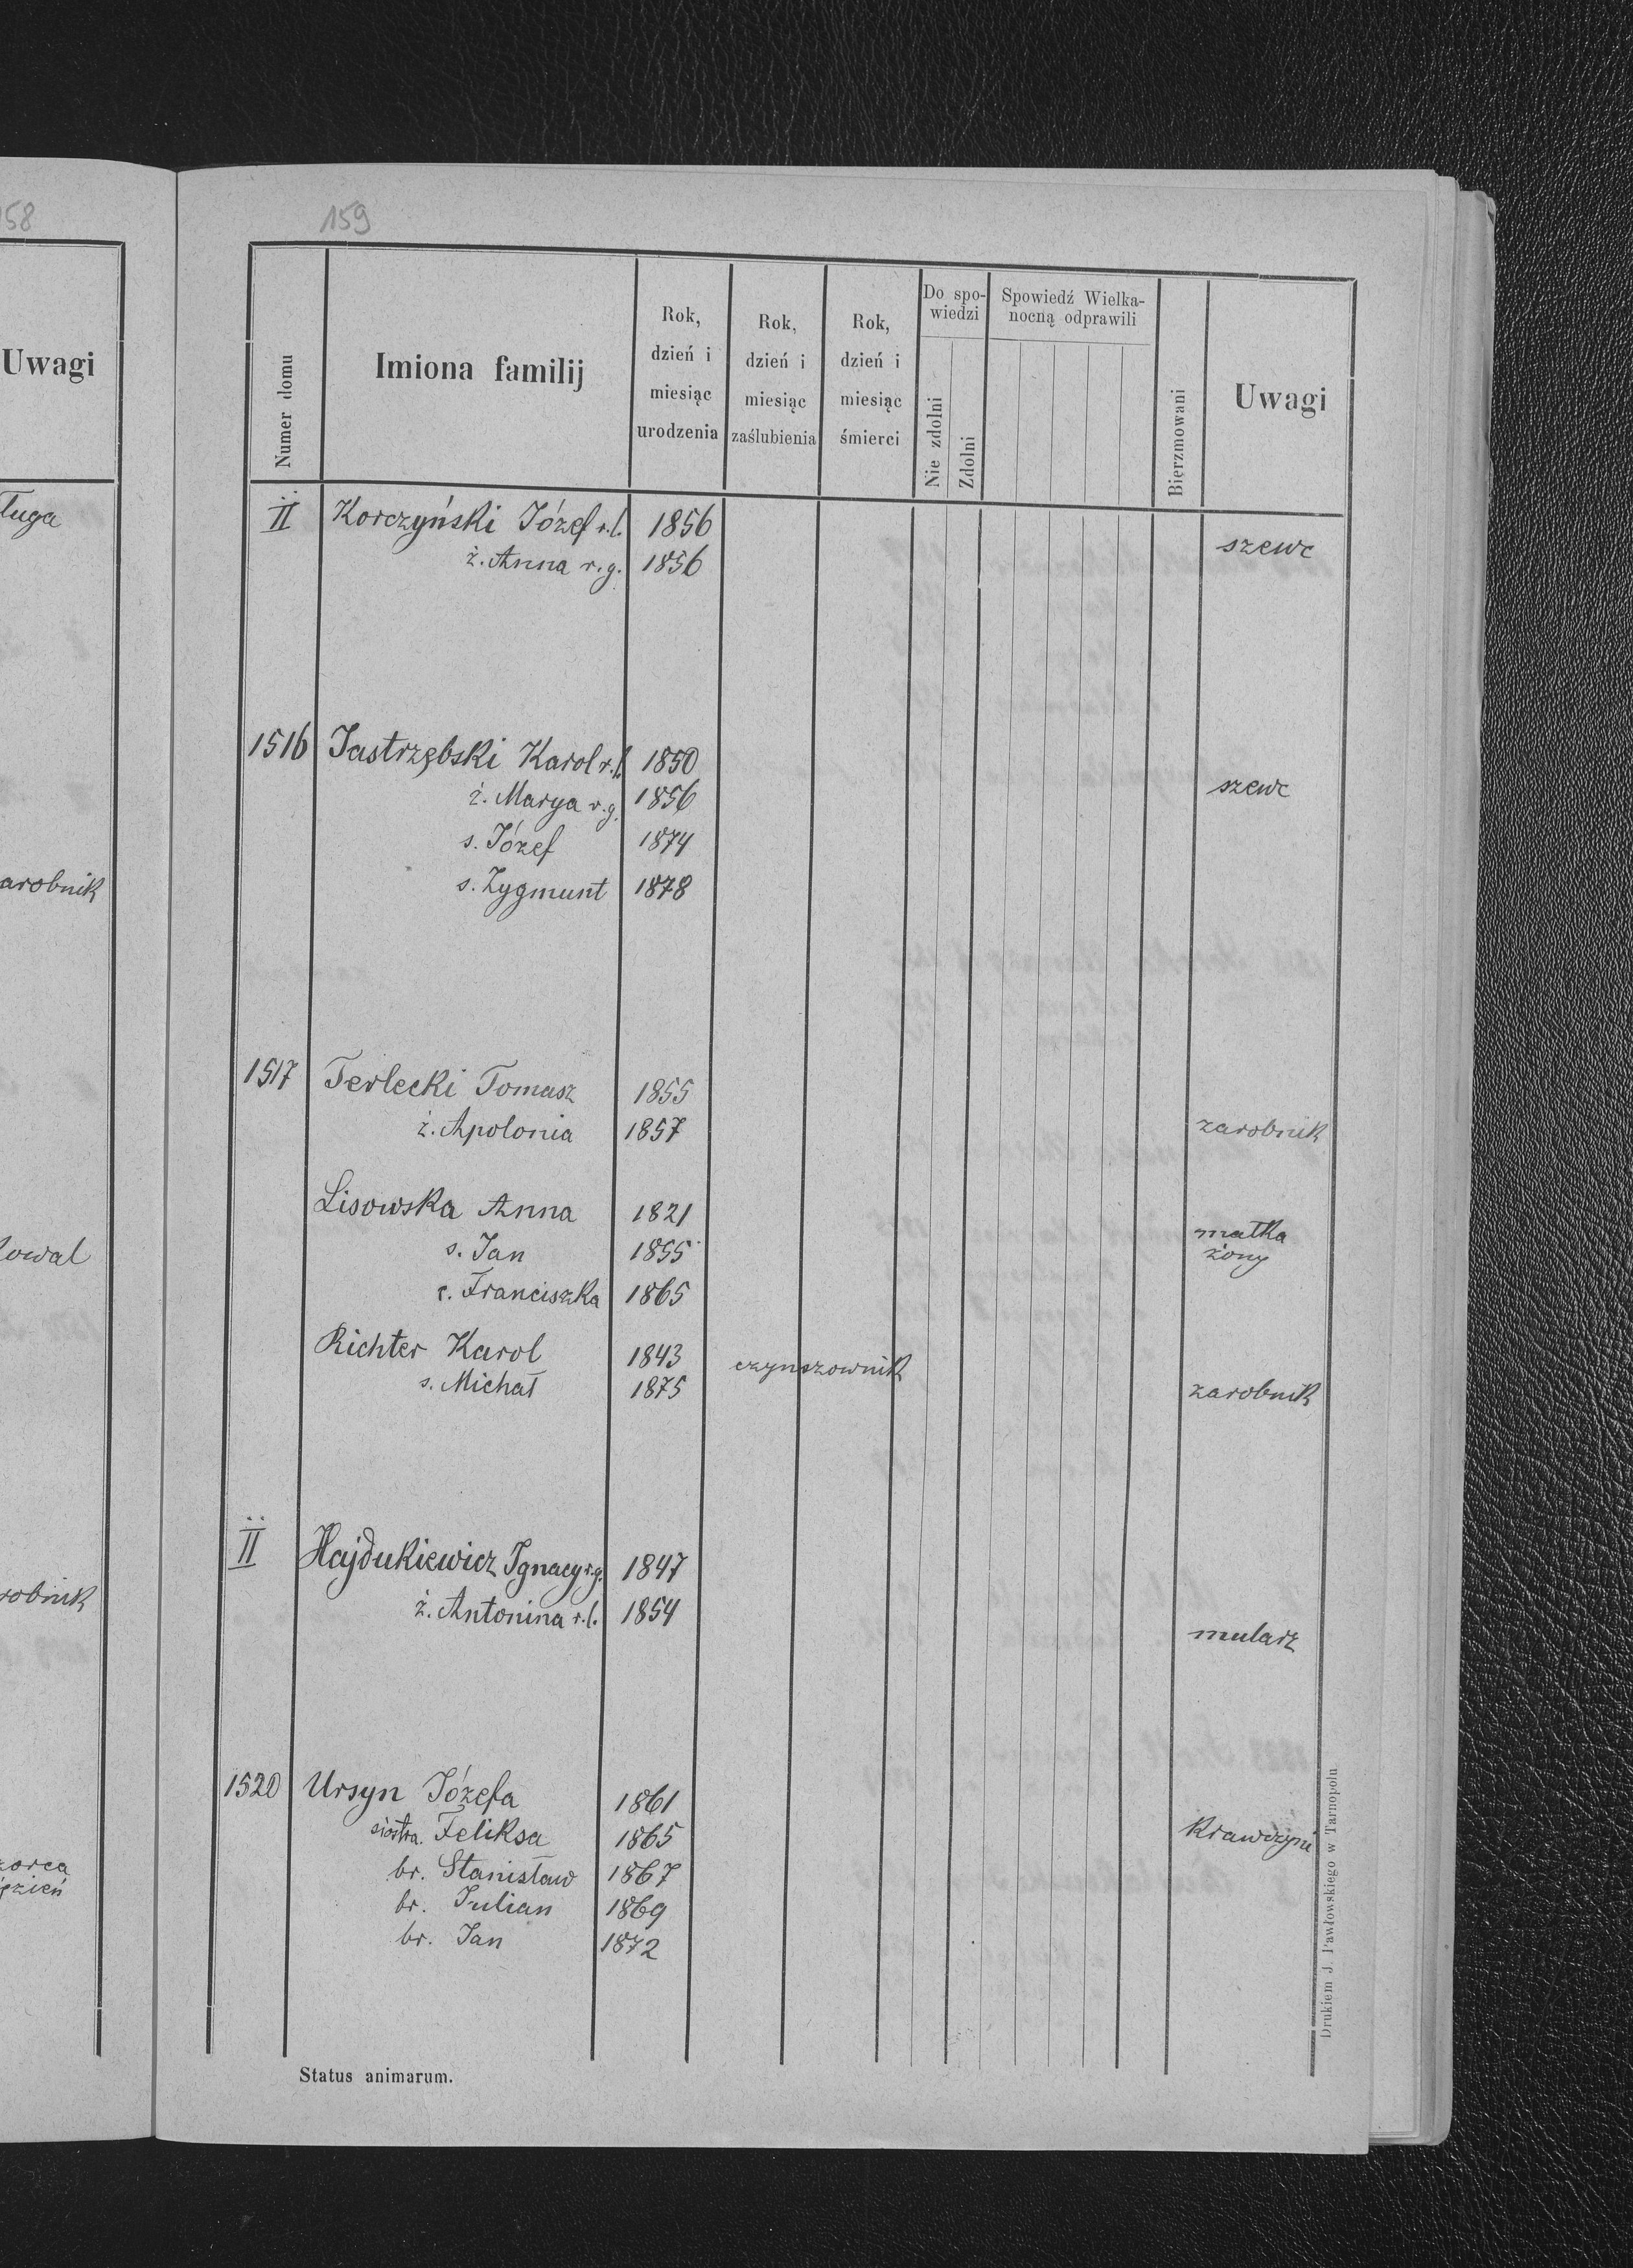 58
Uwagi
ługa
arobnik
kowal
robnik
zorca
159
Numer domu
Imiona familij
Rok,
dzień i
miesiąc
urodzenia
Rok,
dzień i
miesiąc
zaślubienia
Rok,
dzień i
miesiąc
śmierci
Do spo-
wiedzi
Nie zdolni
Zdolni
Spowiedź Wielka-
nocną odprawili
Bierzmowani
Uwagi
II Korczyński Józef r.l. 1856
szewc
ż. Anna r.g. 1856
1516 Jastrzębski Karol r.l. 1850
ż. Marya r.g. 1856 szewc
s. Józef 1874
s. Zygmunt 1878
1517 Terlecki Tomasz 1855
ż. Apolonia 1857 zarobnik
Lisowska Anna 1821 matka
s. Jan 1855 żony
c. Franciszka 1865
Richter Karol 1843 czynszownik
s. Michał 1875 zarobnik
II Hajdukiewicz Ignacy r.g. 1847
ż. Antonina r.l. 1854
mularz
1520 Ursyn Józefa 1861
siostra. Feliksa 1865 Krawczyni
br. Stanisław 1867
br. Julian 1869
br. Jan 1872
Status animarum.
Drukiem J. Pawłowskiego w Tarnopolu